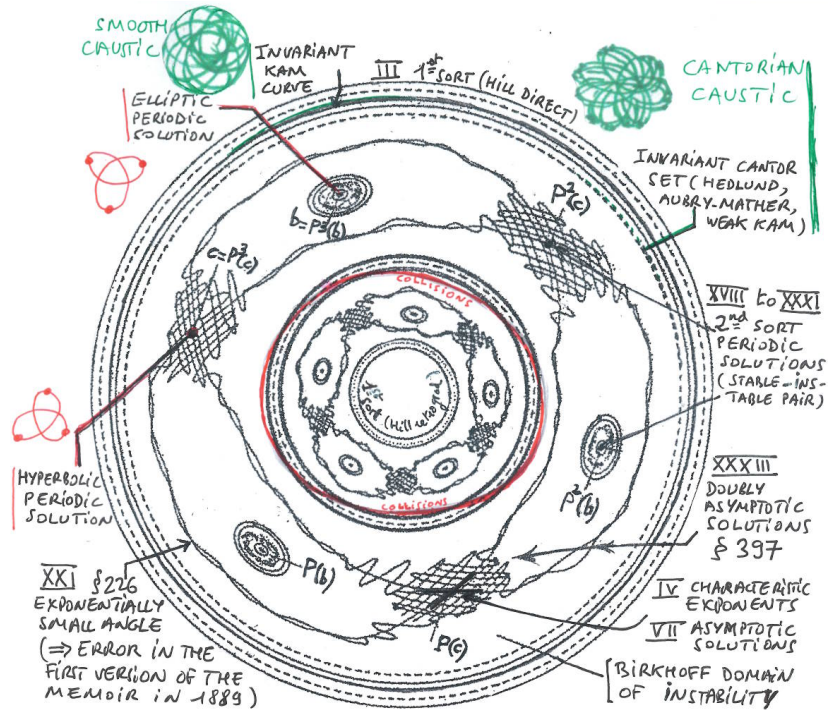 SMOOTH
CAUSTIC
INVARIANT
KAM
CURVE
III 1st SORT (HILL DIRECT)
CANTORIAN
CAUSTIC
ELLIPTIC
PERIODIC
SOLUTION
INVARIANT CANTOR
SET (HEDLUND,
AUBRY-MATHER,
WEAK KAM)
P²(c)
b=P³(b)
c=P³(c)
COLLISIONS
XVIII to XXXI
2nd SORT
PERIODIC
SOLUTIONS
(STABLE-INS-
TABLE PAIR)
1st sort (Hill retrograd)
HYPERBOLIC
PERIODIC
SOLUTION
P²(b)
XXXIII
DOUBLY
ASYMPTOTIC
SOLUTIONS
§ 397
COLLISIONS
P(b)
XXI §226
EXPONENTIALLY
SMALL ANGLE
(⇒ ERROR IN THE
FIRST VERSION OF THE
MEMOIR IN 1889)
IV CHARACTERISTIC
EXPONENTS
VII ASYMPTOTIC
SOLUTIONS
P(c)
BIRKHOFF DOMAIN
OF INSTABILITY